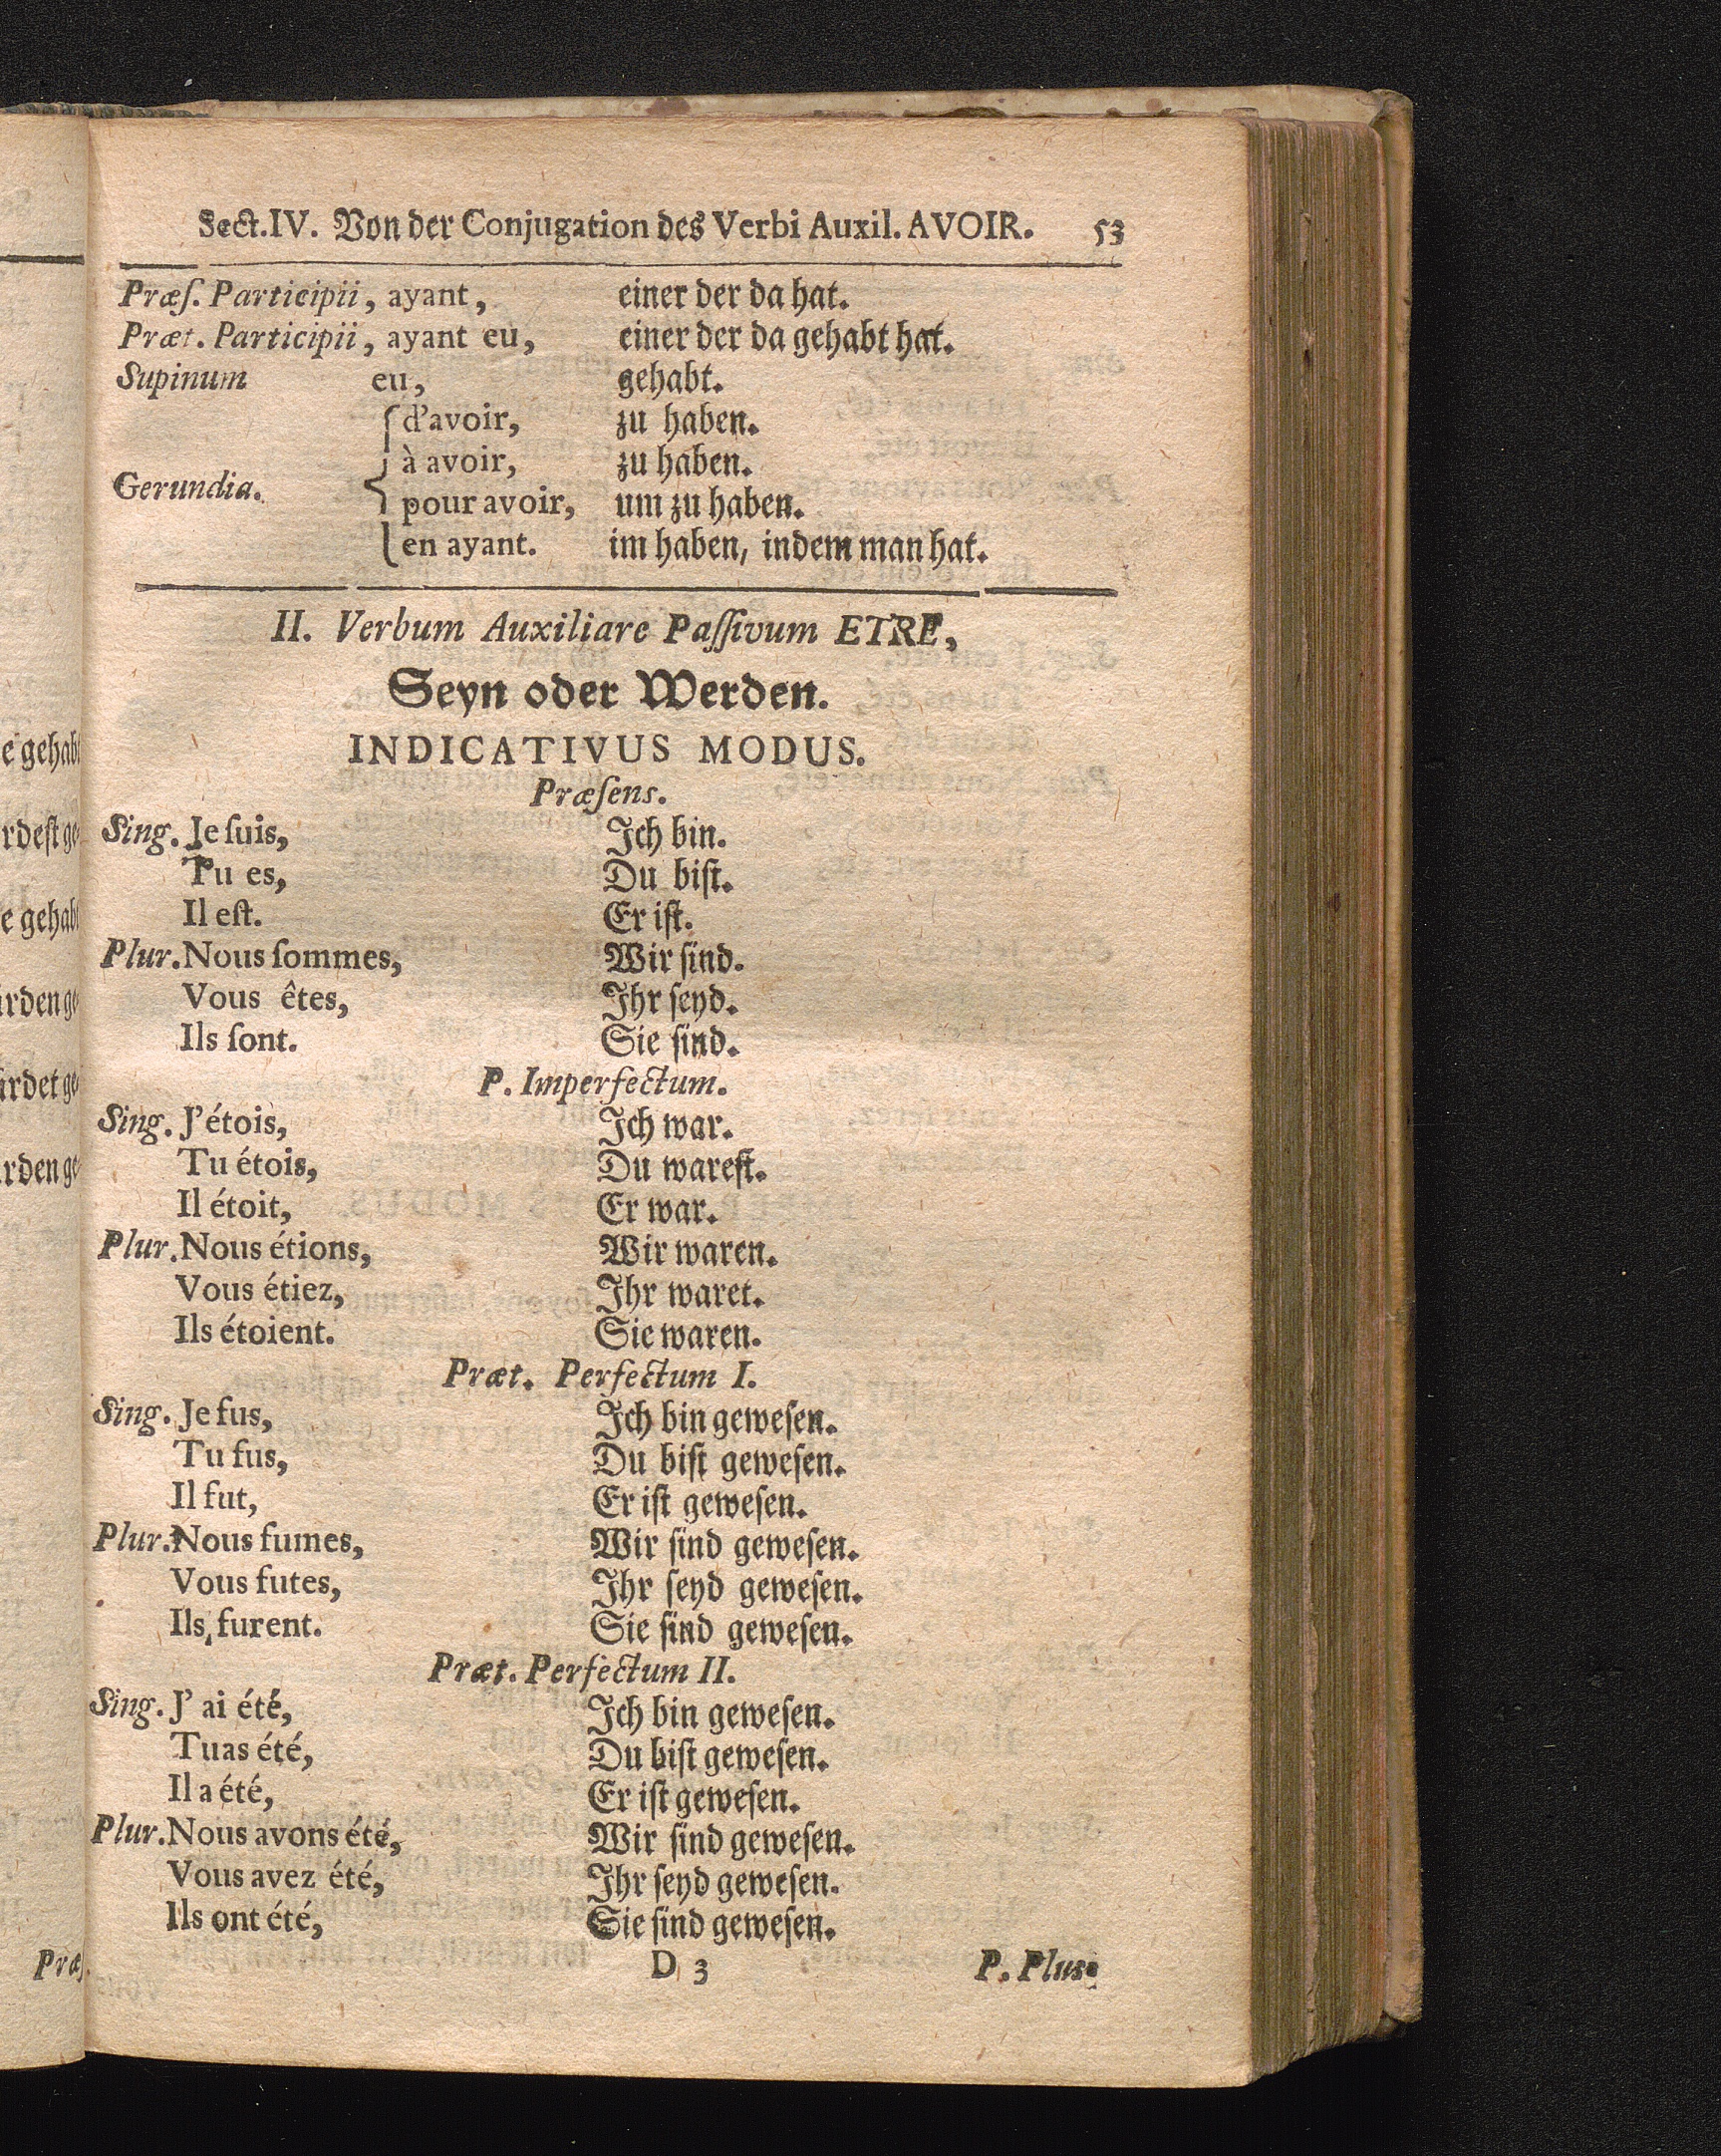 Sect. IV. Von der Conjugation des Verbi Auxil. AVOIR. 53
Præſ. Participii, ayant, einer der da hat.
Præt. Participii, ayant eu, einer der da gehabt hat.
Supinum eu, gehabt.
d'avoir, zu haben.
à avoir, zu haben.
Gerundia.
pour avoir, um zu haben.
en ayant. im haben, indem man hat.
II. Verbum Auxiliare Paſſivum ETRE,
Seyn oder Werden.
INDICATIVUS MODUS.
Præſens.
Sing. Je ſuis, Ich bin.
Tu es, Du biſt.
Il eſt. Er iſt.
Plur. Nous ſommes, Wir ſind.
Vous êtes, Ihr ſeyd.
Ils ſont. Sie ſind.
P. Imperfectum.
Sing. J'étois, Ich war.
Tu étois, Du wareſt.
Il étoit, Er war.
Plur. Nous étions, Wir waren.
Vous étiez, Ihr waret.
Ils étoient. Sie waren.
Præt. Perfectum I.
Sing. Je fus, Ich bin geweſen.
Tu fus, Du biſt geweſen.
Il fut, Er iſt geweſen.
Plur. Nous fumes, Wir ſind geweſen.
Vous futes, Ihr ſeyd geweſen.
Ils furent. Sie ſind geweſen.
Præt. Perfectum II.
Sing. J' ai été, Ich bin geweſen.
Tu as été, Du biſt geweſen.
Il a été, Er iſt geweſen.
Plur. Nous avons été, Wir ſind geweſen.
Vous avez été, Ihr ſeyd geweſen.
Ils ont été, Sie ſind geweſen.
D 3 P. Plus-